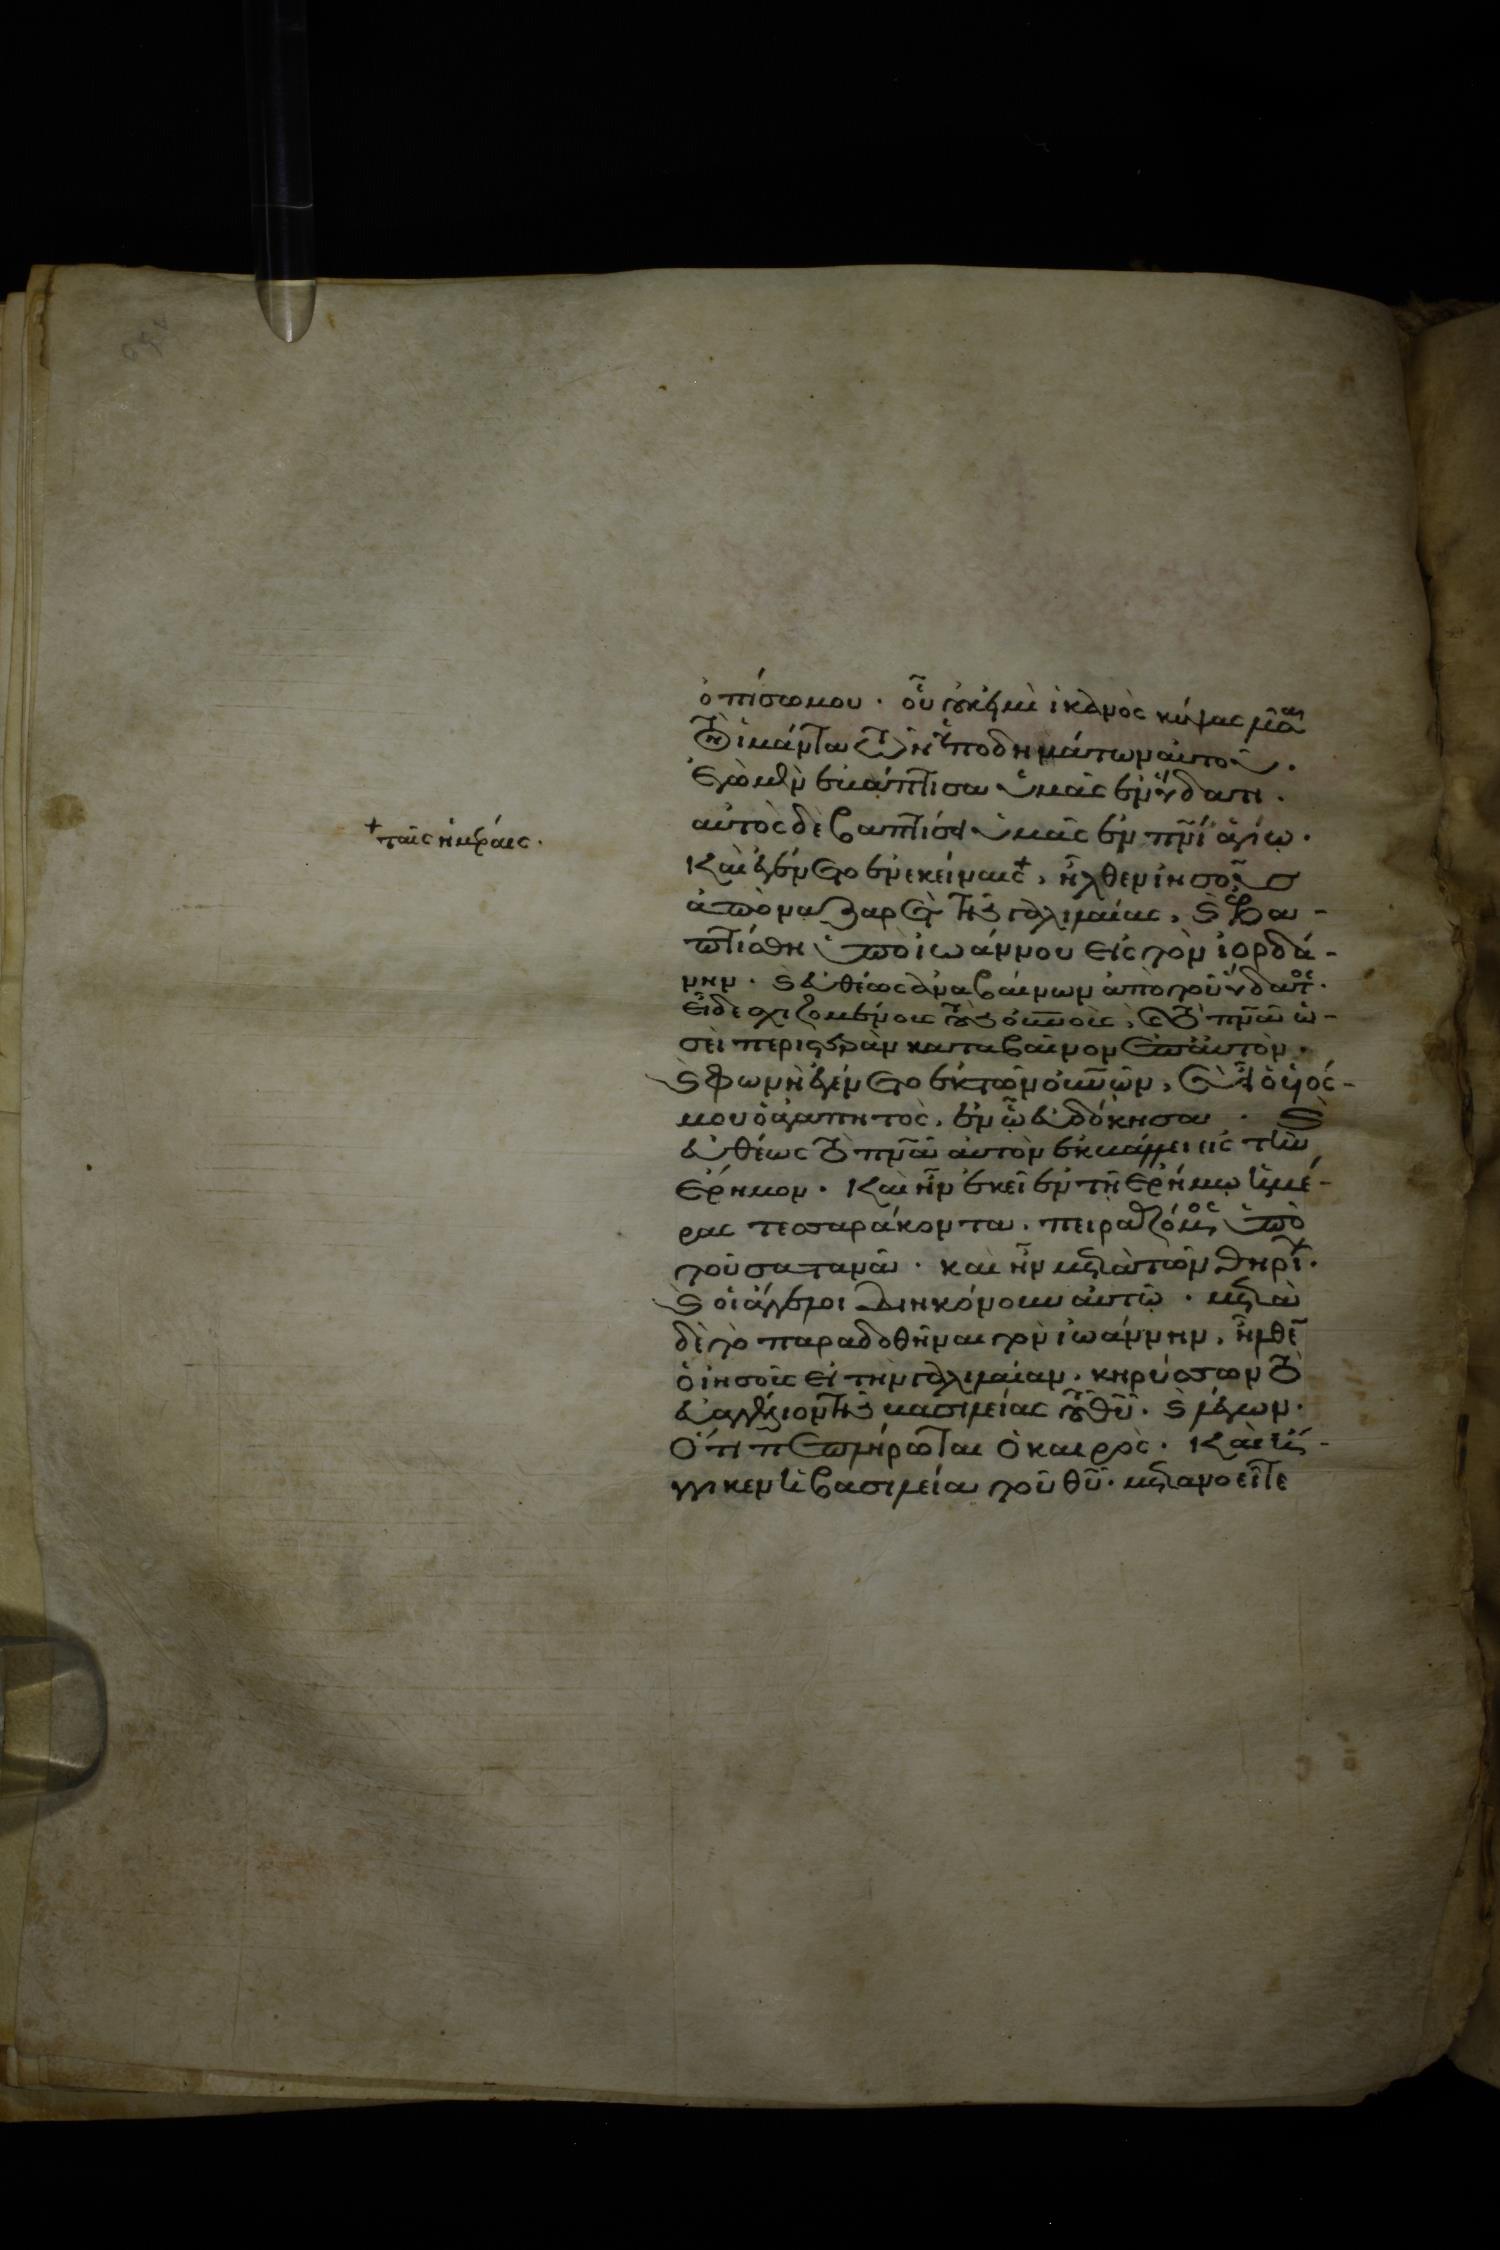 ὀπίσω μου · οὗ οὐκ εἰμὶ ἱκανὸς κύψας λῦσαι
τὸν ἱμάντα τῶν ὑποδημάτων αὐτοῦ ·
ἐγὼ μὲν ἐβάπτισα ὑμᾶς ἐν ὕδατι ·
αὐτὸς δὲ βαπτίσει ὑμᾶς ἐν πνι ἁγίω ·
+ ταῖς ἡμέραις ·
Καὶ ἐγένετο ἐν ἐκείναις + , ἦλθεν ἰησοῦς
ἀπὸ ναζαρὲτ τῆς γαλιλαίας , καὶ ἐβα-
πτίσθη ὑπὸ ἰωάννου εἰς τὸν ἰορδά-
νην · καὶ εὐθέως ἀναβαίνων ἀπὸ τοῦ ὕδατος ·
εἶδε σχιζομένους τοὺς οὐνοὺς , καὶ τὸ πνα ὡ-
σεὶ περιστερὰν καταβαῖνον ἐπ' αὐτὸν ·
καὶ φωνὴ ἐγένετο ἐκ τῶν οὐνῶν , σὺ εἶ ὁ υἱός-
μου ὁ ἀγαπητὸς , ἐν ὧ εὐδόκησα · καὶ
εὐθέως τὸ πνα αὐτὸν ἐκβάλλει εἰς τὴν
ἔρημον · Καὶ ἦν ἐκεῖ ἐν τῇ ἐρήμω ἡμέ-
ρας τεσσαράκοντα · πειραζόμενος ὑπὸ
τοῦ σατανᾶ · καὶ ἦν μετὰ τῶν θηρίων ·
καὶ οἱ ἄγγελοι διηκόνουν αὐτῶ · μετὰ
δὲ τὸ παραδοθῆναι τὸν ἰωάννην , ἦλθεν
ὁ ἰησοῦς εἰς τὴν γαλιλαίαν · κηρύσσων τὸ
εὐαγγέλιον τῆς βασιλείας τοῦ θυ · καὶ λέγων ·
Ὅτι πεπλήρωται ὁ καιρὸς · Καὶ ἤ-
γγικεν ἡ βασιλεία τοῦ θυ · μετανοεῖτε